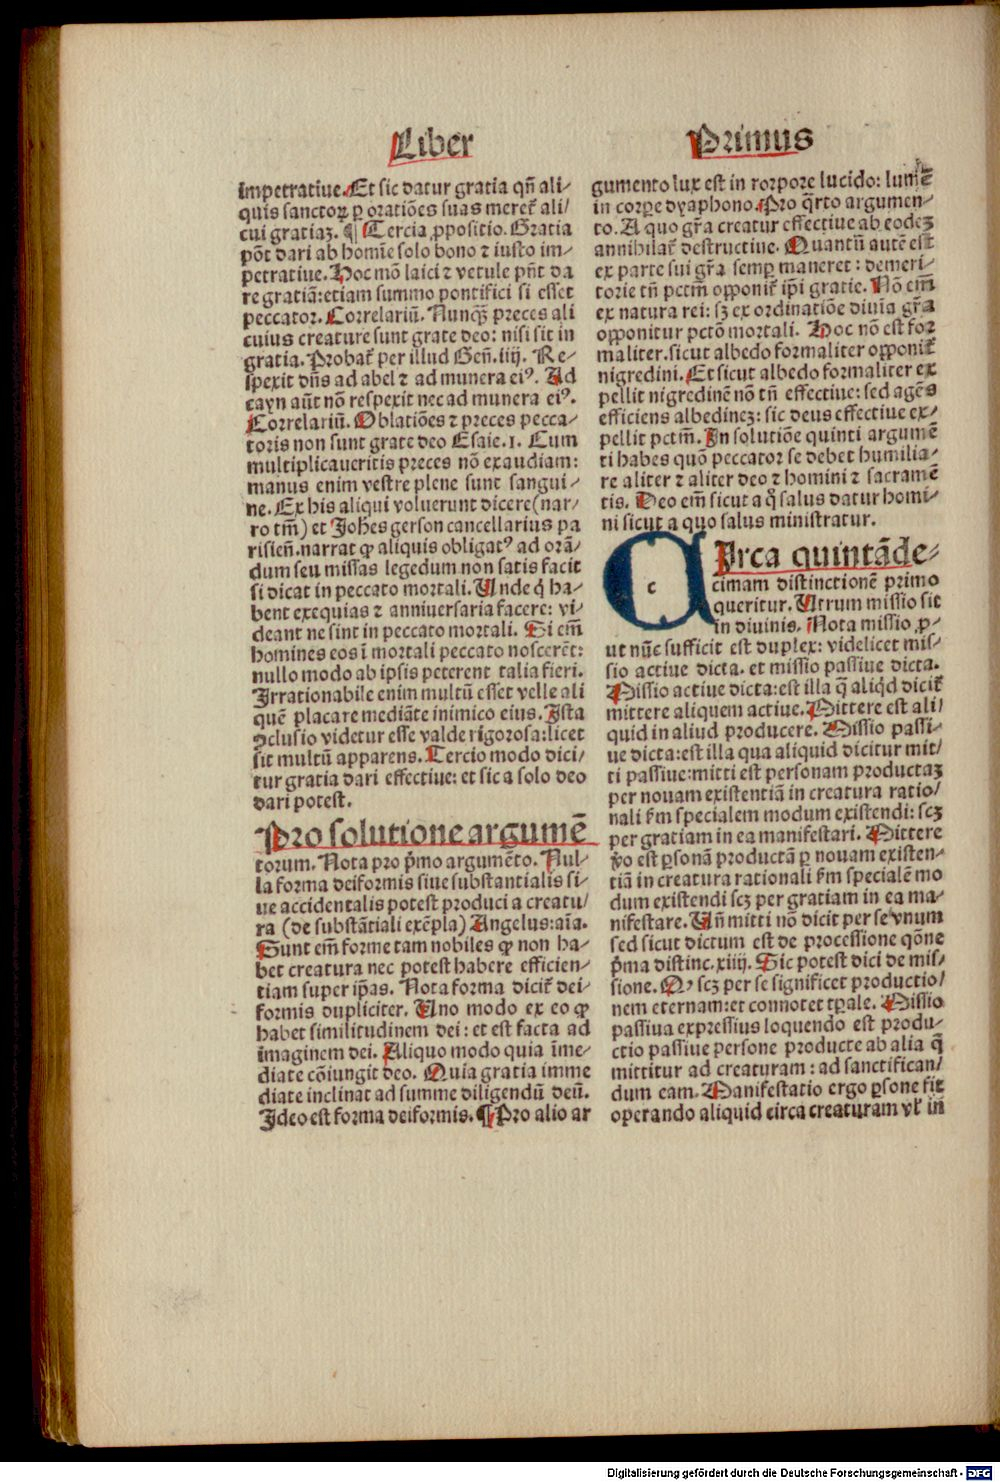 Liber
Primus
impetratiue. Et sic datur gratia qñ ali⸗
quis sanctoꝝ ꝑ oratiões suas meret᷑ ali/
cui gratiaꝫ. ¶ Tercia ꝓpositio. Gratia
põt dari ab homĩe solo bono ⁊ iusto im⸗
petratiue. Hoc mõ laici ⁊ vetule pñt da
re gratiã: etiam summo pontifici si esset
peccator. Correlariũ. Nunqꝫ preces ali
cuius creature sunt grate deo: nisi sit in
gratia. Probat᷑ per illud Geñ. iiij. Re⸗
spexit dñs ad abel ⁊ ad munera eiꝰ. Ad
cayn aũt nõ respexit nec ad munera eiꝰ.
Correlariũ. Oblatiões ⁊ preces pecca⸗
toris non sunt grate deo Esaie. 1. Cum
multiplicaueritis preces nõ exaudiam:
manus enim vestre plene sunt sangui⸗
ne. Ex his aliqui voluerunt dicere (nar⸗
ro tm̃) et Joh̃es gerson cancellarius pa
risieñ. narrat ꝙ aliquis obligatꝰ ad orã⸗
dum seu missas legedum non satis facit
si dicat in peccato mortali. Unde q̇ ha⸗
bent exequias ⁊ anniuersaria facere: vi⸗
deant ne sint in peccato mortali. Si em̃
homines eos ĩ mortali peccato noscerẽt:
nullo modo ab ipsis peterent talia fieri.
Irrationabile enim multũ esset velle ali
quẽ placare mediãte inimico eius. Ista
ꝯclusio videtur esse valde rigorosa: licet
sit multũ apparens. Tercio modo dici⸗
tur gratia dari effectiue: et sic a solo deo
dari potest.
Pro solutione argumẽ
torum. Nota pro p̃mo argumẽto. Nul⸗
la forma deiformis siue substantialis si⸗
ue accidentalis potest produci a creatu/
ra (de substãtiali exẽpla) Angelus: aĩa.
Sunt em̃ forme tam nobiles ꝙ non ha⸗
bet creatura nec potest habere efficien⸗
tiam super ip̃as. Nota forma dicit᷑ dei⸗
formis dupliciter. Uno modo ex eo ꝙ
habet similitudinem dei: et est facta ad
imaginem dei. Aliquo modo quia ĩme⸗
diate cõiungit deo. Quia gratia imme
diate inclinat ad summe diligendũ deũ.
Ideo est forma deiformis. ¶ Pro alio ar
gumento lux est in rorpore lucido: lumẽ
in corꝑe dyaphono. Pro q̃rto argumen⸗
to. A quo gr̃a creatur effectiue ab eodeꝫ
annihilat᷑ destructiue. Quantũ autẽ est
ex parte sui gr̃a semꝑ maneret: demeri⸗
torie tñ pctm̃ opponit᷑ ip̃i gratie. Nõ em̃
ex natura rei: sꝫ ex ordinatiõe diuĩa gr̃a
opponitur pctõ mortali. Hoc nõ est for
maliter. sicut albedo formaliter opponit᷑
nigredini. Et sicut albedo formaliter ex
pellit nigredinẽ nõ tñ effectiue: sed agẽs
efficiens albedineꝫ: sic deus effectiue ex⸗
pellit pctm̃. In solutiõe quinti argumẽ
ti habes quõ peccator se debet humilia⸗
re aliter ⁊ aliter deo ⁊ homini ⁊ sacramẽ
tis. Deo em̃ sicut a q̊ salus datur homi⸗
ni sicut a quo salus ministratur.
C c Irca quintãde⸗
cimam distinctionẽ primo
queritur. Utrum missio sit
in diuinis. Nota missio ꝓ⸗
ut nũc sufficit est duplex: videlicet mis⸗
sio actiue dicta. et missio passiue dicta.
Missio actiue dicta: est illa q̃ aliq̇d dicit᷑
mittere aliquem actiue. Mittere est ali/
quid in aliud producere. Missio passi⸗
ue dicta: est illa qua aliquid dicitur mit/
ti passiue: mitti est personam productaꝫ
per nouam existentiã in creatura ratio/
nali ẜm specialem modum existendi: scꝫ
per gratiam in ea manifestari. Mittere
ṽo est ꝑsonã productã ꝑ nouam existen⸗
tiã in creatura rationali ẜm specialẽ mo
dum existendi scꝫ per gratiam in ea ma⸗
nifestare. Uñ mitti nõ dicit per se vnum
sed sicut dictum est de processione qõne
p̃ma distinc. xiiij. Sic potest dici de mis⸗
sione. Qꝫ scꝫ per se significet productio/
nem eternam: et connotet tꝑale. Missio
passiua expressius loquendo est produ⸗
ctio passiue persone producte ab alia q̃
mittitur ad creaturam: ad sanctifican/
dum eam. Manifestatio ergo ꝑsone fit
operando aliquid circa creaturam vl̃ iñ
Digitalisierung gefördert durch die Deutsche Forschungsgemeinschaft - DFG